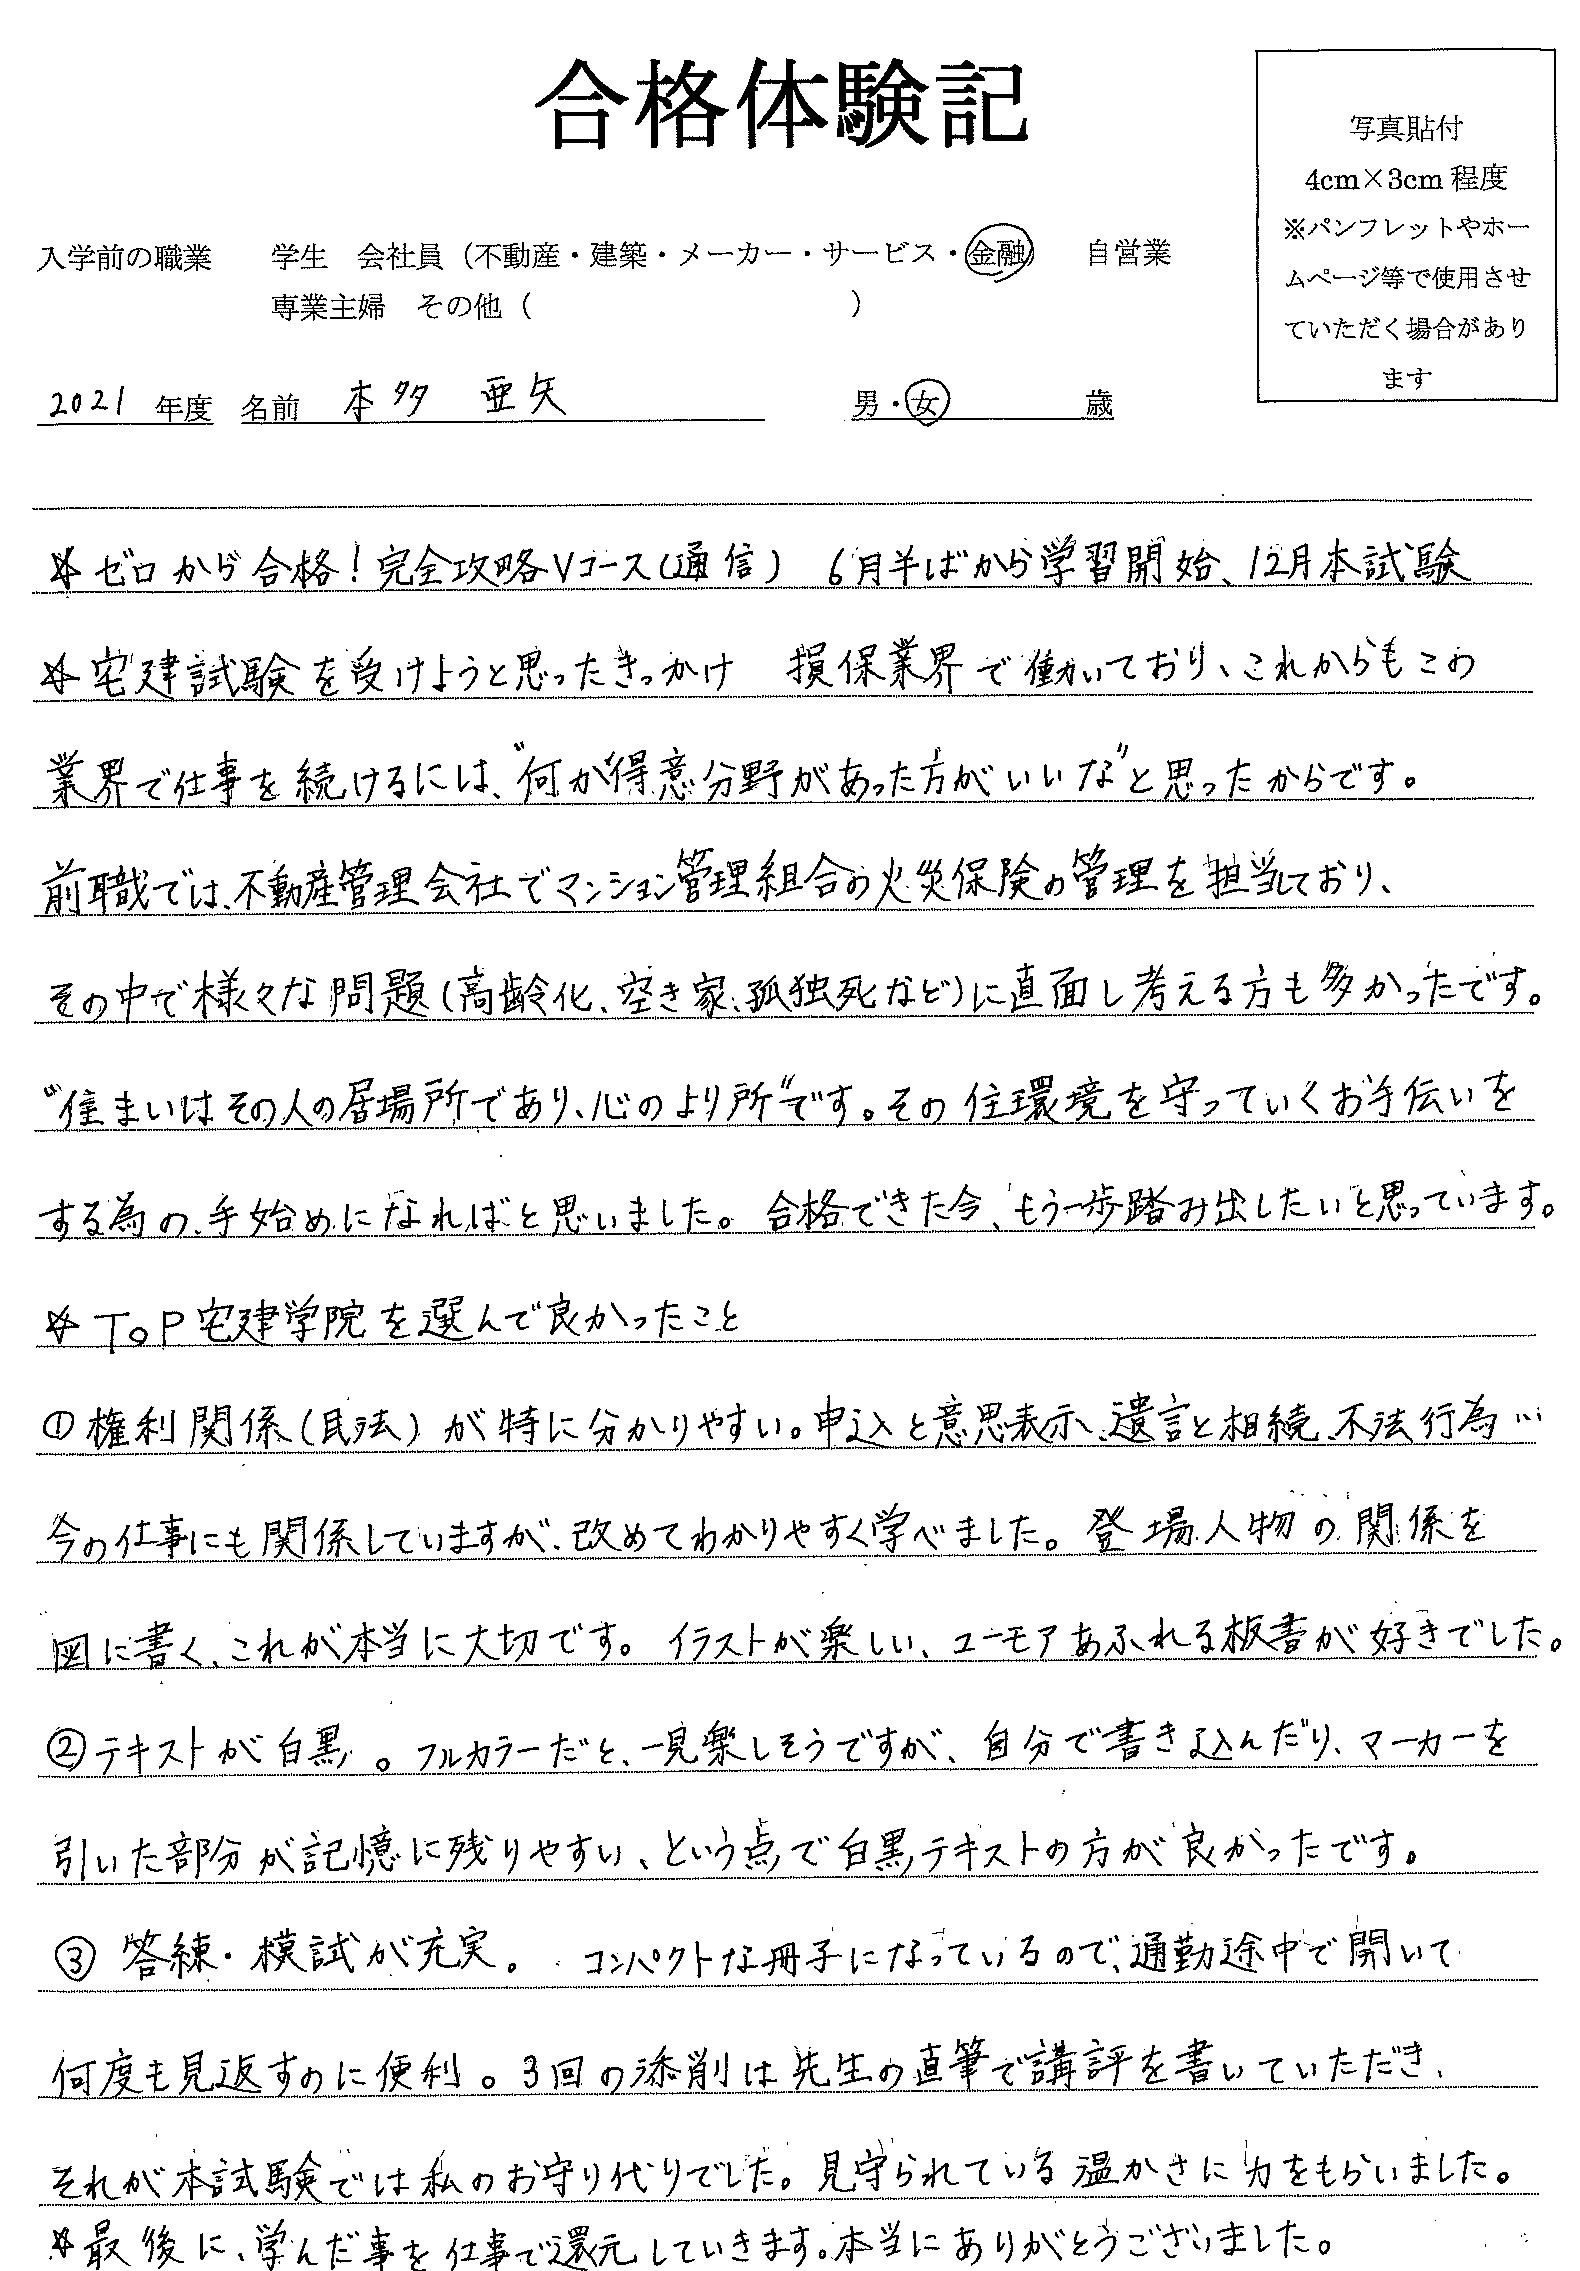 合格体験記
写真貼付
4cm×3cm 程度
※パンフレットやホー
ムページ等で使用させ
ていただく場合があり
ます
入学前の職業　学生　会社員（不動産・建築・メーカー・サービス・金融）　自営業
専業主婦　その他（　　　　　　）
2021 年度　名前　本多 亜矢　男・女　歳
☆ゼロから合格！完全攻略Vコース(通信)　6月半ばから学習開始、12月本試験
☆宅建試験を受けようと思ったきっかけ　損保業界で働いており、これからもこの
業界で仕事を続けるには、"何か得意分野があった方がいいな"と思ったからです。
前職では、不動産管理会社でマンション管理組合の火災保険の管理を担当しており、
その中で様々な問題(高齢化、空き家、孤独死など)に直面し考える方も多かったです。
"住まいはその人の居場所であり、心のより所"です。その住環境を守っていくお手伝いを
する為の、手始めになればと思いました。合格できた今、もう一歩踏み出したいと思っています。
☆ToP宅建学院を選んで良かったこと
①権利関係(民法)が特に分かりやすい。申込と意思表示、遺言と相続、不法行為…
今の仕事にも関係していますが、改めてわかりやすく学べました。登場人物の関係を
図に書く、これが本当に大切です。イラストが楽しい、ユーモアあふれる板書が好きでした。
②テキストが白黒。フルカラーだと、一見楽しそうですが、自分で書き込んだり、マーカーを
引いた部分が記憶に残りやすい、という点で白黒テキストの方が良かったです。
③答練・模試が充実。コンパクトな冊子になっているので、通勤途中で開いて
何度も見返すのに便利。3回の添削は先生の直筆で講評を書いていただき、
それが本試験では私のお守り代りでした。見守られている温かさに力をもらいました。
☆最後に、学んだ事を仕事で還元していきます。本当にありがとうございました。